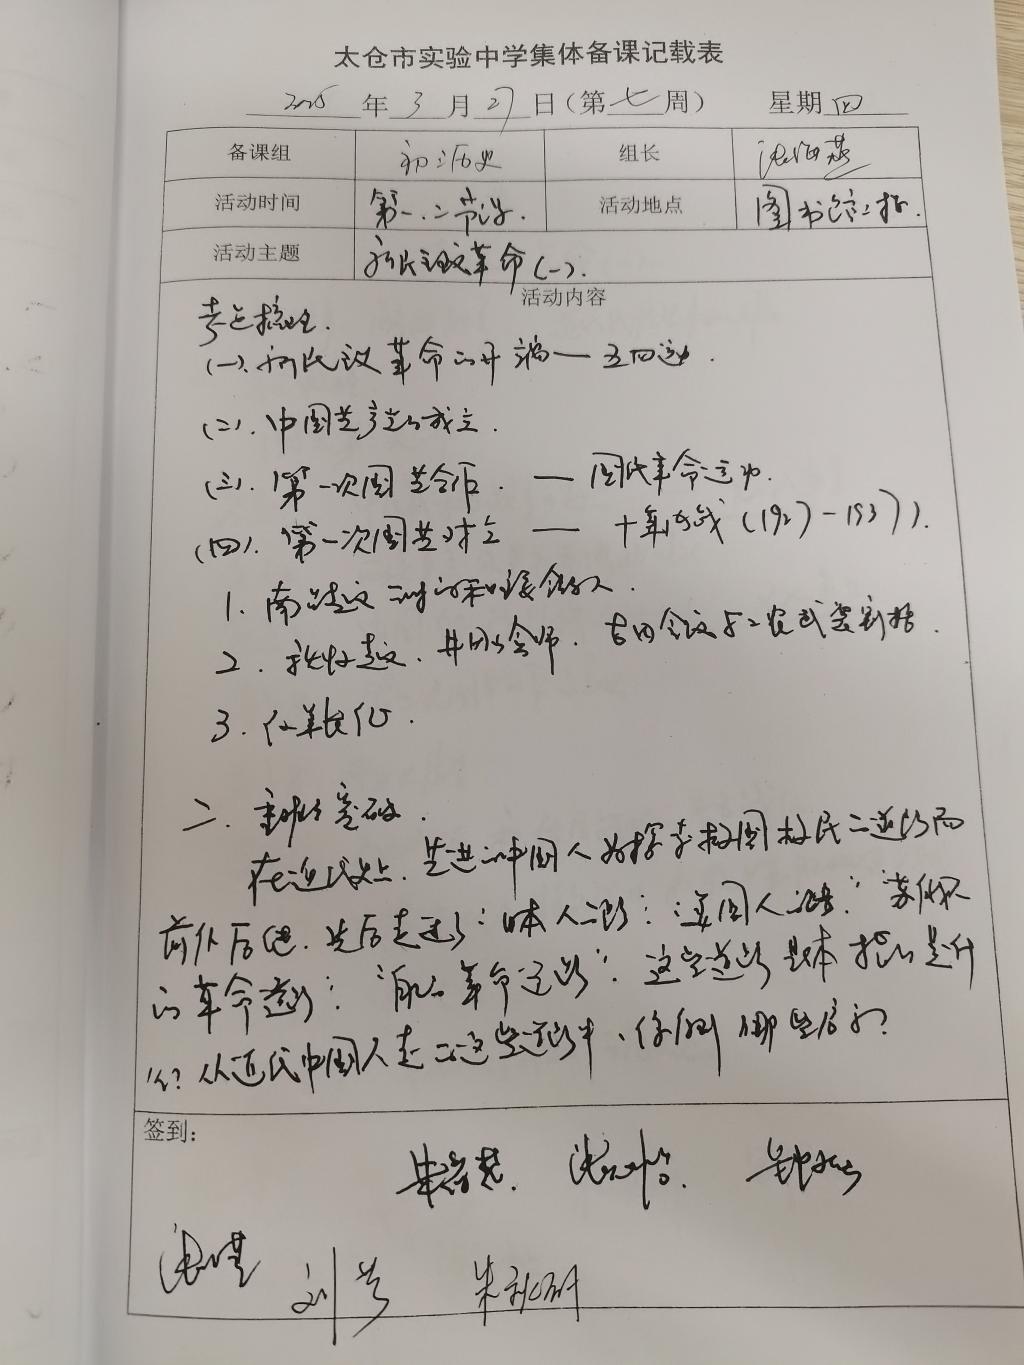 太仓市实验中学集体备课记载表
2025 年 3 月 27 日（第 七 周） 星期 四
备课组 初三历史 组长
活动时间 第一、二节课. 活动地点 图书馆二楼.
活动主题 新民主主义革命(一).
活动内容
考点梳理.
(一). 新民主义革命的开端 — 五四运动.
(二). 中国共产党的成立.
(三). 第一次国共合作. — 国民革命运动.
(四). 第一次国共对立 — 十年内战 (1927-1937).
1. 南昌起义
2. 秋收起义. 井冈山会师. 古田会议与工农武装割据.
3. 红军长征.
二. 重难点突破.
在近代史上. 先进的中国人为探寻救国救民的道路而
前仆后继. 先后走过了"日本人的路" "美国人的路" "苏俄
的革命道路" "自己的革命道路". 这些道路具体指的是什
么? 从近代中国人走的这些道路中, 你 哪些启示?
签到:
刘